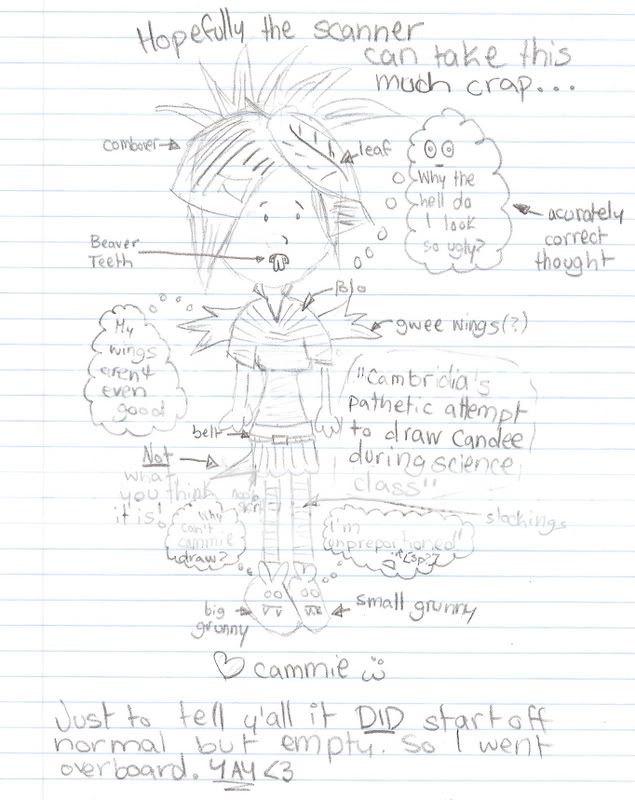 Hopefully the scanner
can take this
much crap...
combover
leaf
Why the
hell do
I look
so ugly?
acurately
correct
thought
Beaver
Teeth
Polo
gwee wings(?)
My
wings
aren't
even
good
"Cambridia's
pathetic attempt
to draw Candee
during science
class"
belt
Not
what
you think
it is!
noob
skirt
stockings
Why
can't
cammie
draw?
I'm
unpreportioned!"
(sp?)
big
grunny
small grunny
♡ cammie
Just to tell y'all it DID start off
normal but empty. So I went
overboard. YAY <3